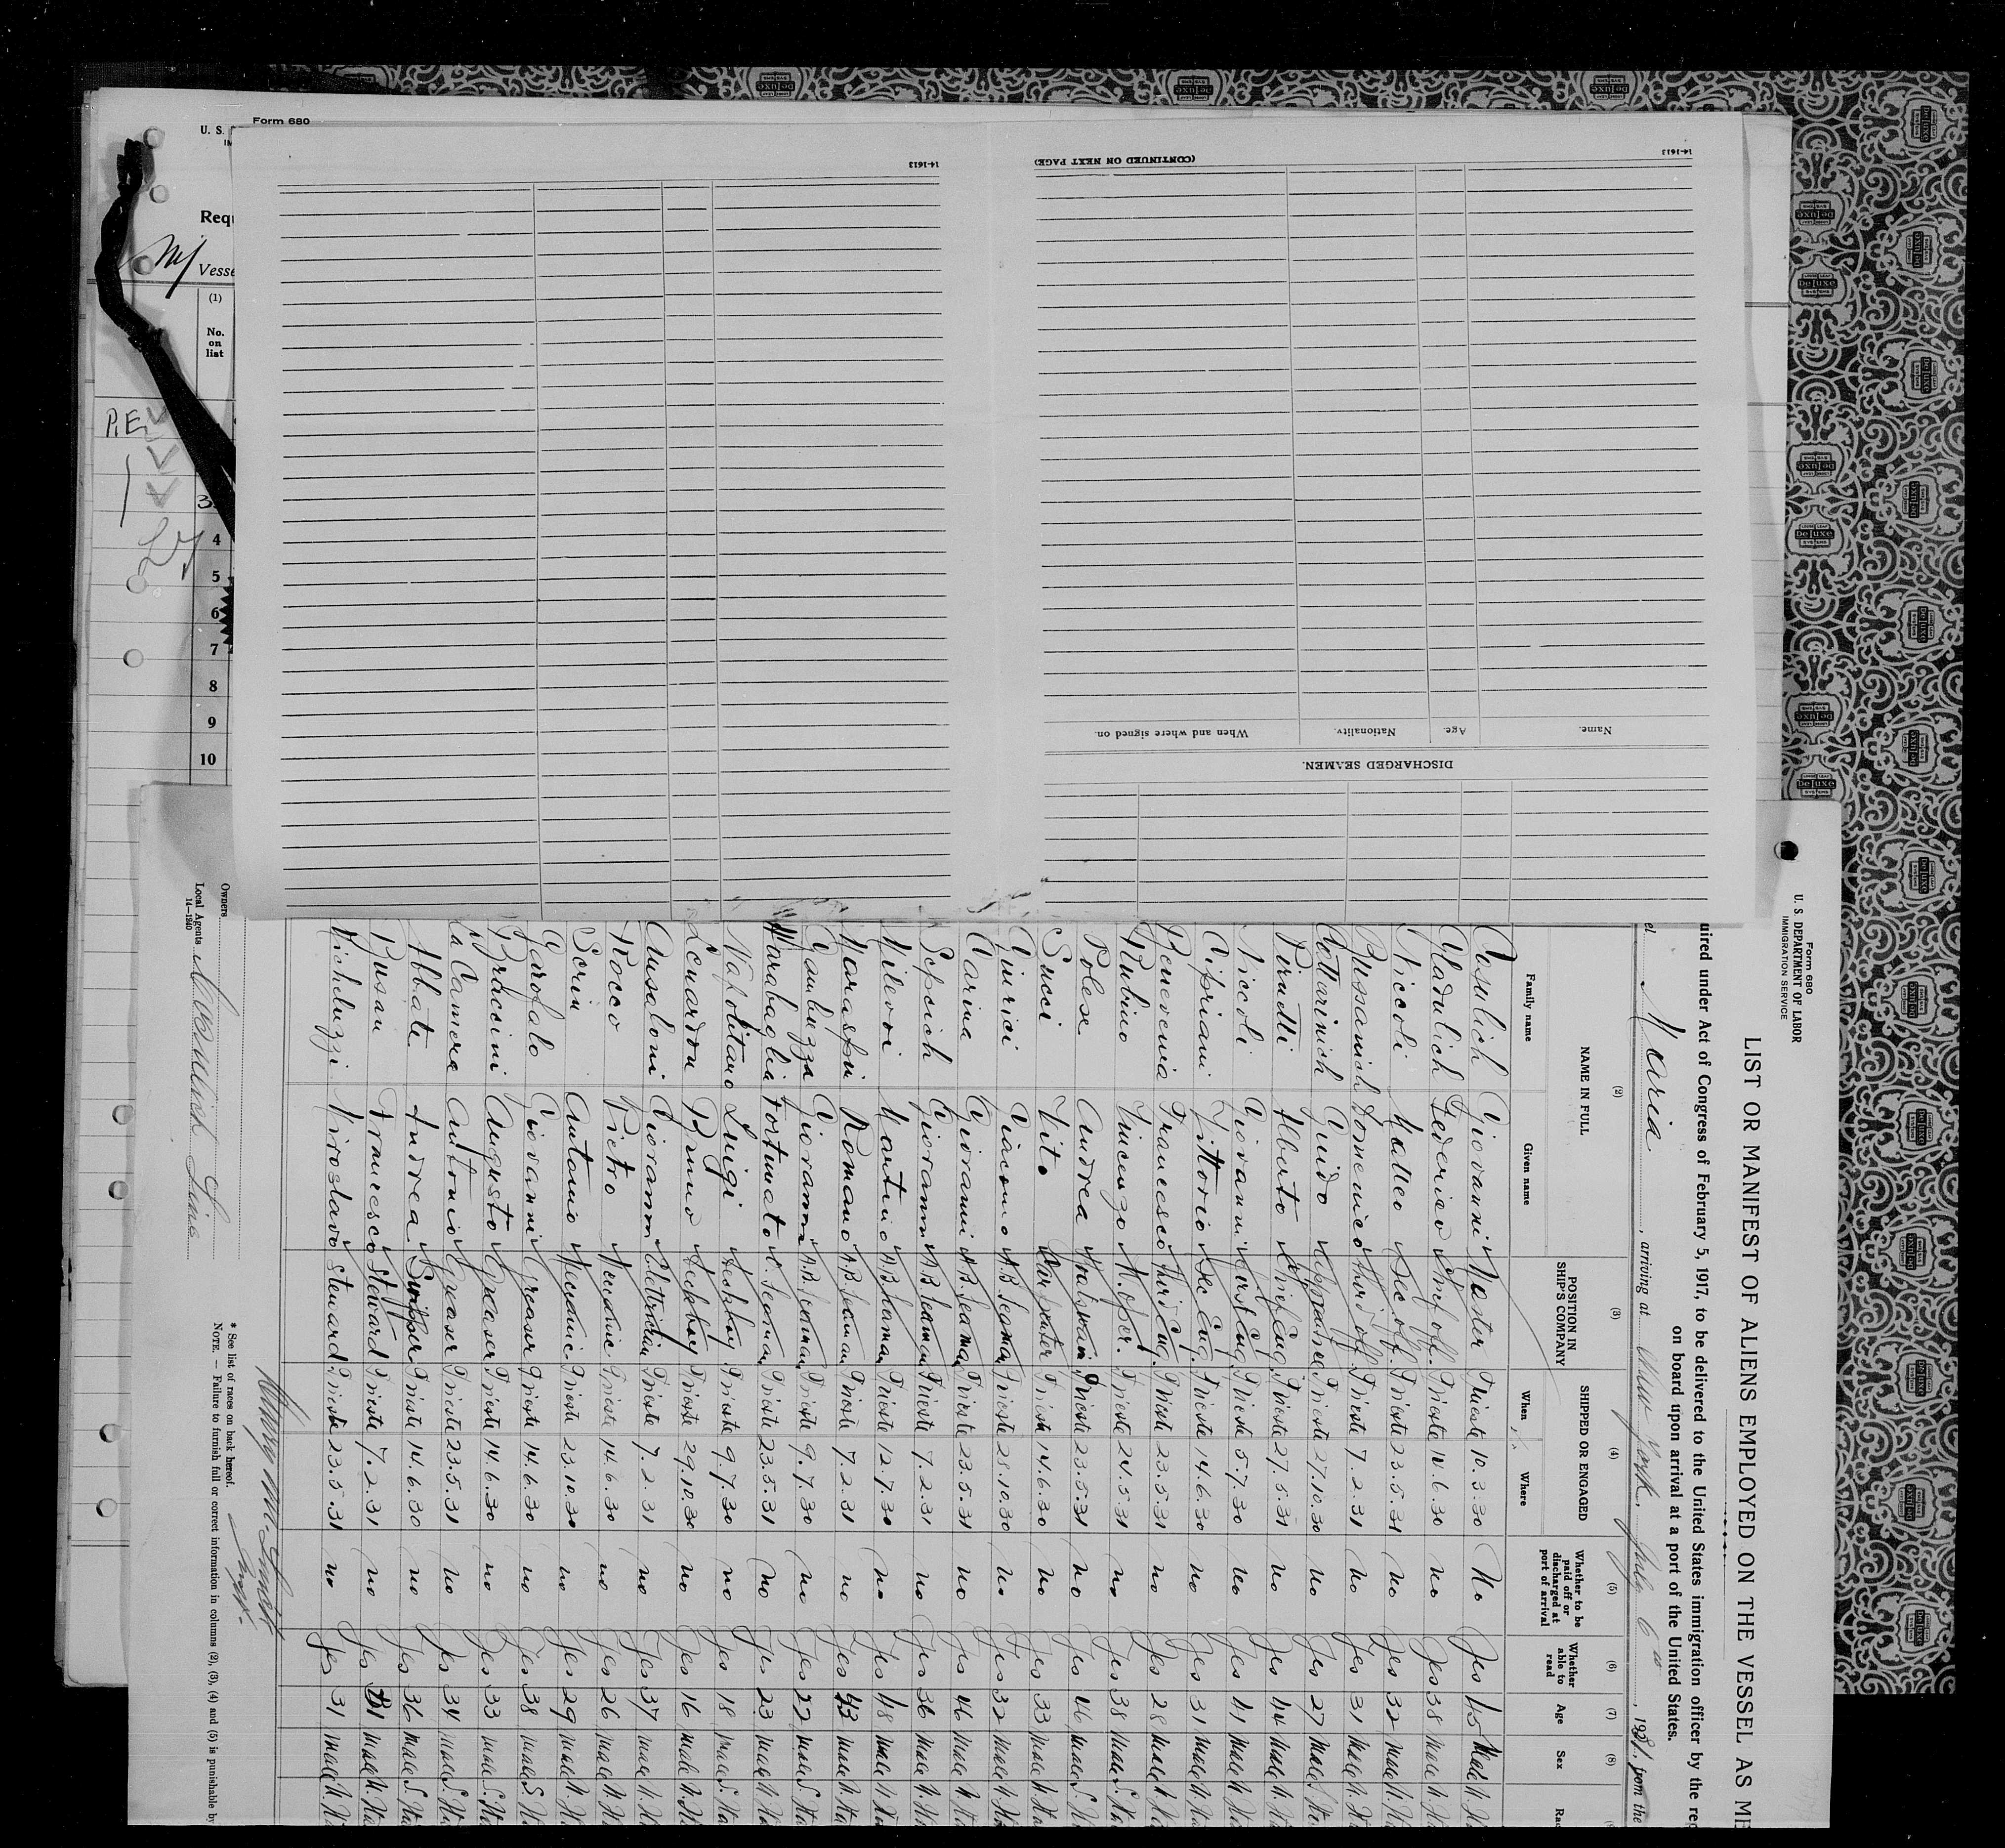 Form 680
U. S.
Requ
M/ Vesse
(1)
No.
on
list
P.E.
3
4
5
6
7
8
9
10
14-1613
(CONTINUED ON NEXT PAGE)
14-1613
Name.
Age.
Nationality.
When and where signed on.
DISCHARGED SEAMEN.
Form 680
U. S. DEPARTMENT OF LABOR
IMMIGRATION SERVICE
LIST OR MANIFEST OF ALIENS EMPLOYED ON THE VESSEL AS ME
uired under Act of Congress of February 5, 1917, to be delivered to the United States immigration officer by the re
on board upon arrival at a port of the United States.
el Maria, arriving at New York, July 6, 1931, from the
(2) (3) (4) (5) (6) (7) (8)
NAME IN FULL
Family name Given name
POSITION IN SHIP'S COMPANY
SHIPPED OR ENGAGED
When Where
Whether to be paid off or discharged at port of arrival
Whether able to read
Age
Sex
Ra
Cosulich Giovanni Master Trieste 10.3.30 No Yes 45 Male N.
Vladulich Federico Chief off. Trieste 14.6.30 no Yes 38 male N.
Niccoli Matteo Sec. off. Trieste 23.5.31 no Yes 32 male N.
Bussanich Domenico Third off. Trieste 7.2.31 no Yes 31 male N.
Cottarinich Guido Apprentice Trieste 27.10.30 no Yes 27 male
Pirnetti Alberto Chief Eng. Trieste 27.5.31 no Yes 44 male N.
Niccoli Giovanni First Eng. Trieste 5.7.30 no Yes 41 male N.
Cipriani Vittorio Sec Eng. Trieste 14.6.30 no Yes 31 male N.
Benevenia Francesco Third Eng. Trieste 23.5.31 no Yes 28 male
Rubino Vincenzo M. Oper. Trieste 24.5.31 no Yes 38 male S.
Polese Andrea Trieste 23.5.31 no Yes 46 male
Succi Vito Carpenter Trieste 14.6.30 no Yes 33 male
Giurici Giacomo A.B. Seaman Trieste 28.10.30 no Yes 32 male N.
Carina Giovanni A.B. Seaman Trieste 23.5.31 no Yes 46 male N.
Scopich Giovanni A.B. Seaman Trieste 7.2.31 no Yes 36 male N.
Milevoi Martino A.B. Seaman Trieste 12.7.30 no Yes 48 male N.
Maraspin Romano A.B. Seaman Trieste 7.2.31 no Yes 43 male N.
Gambuzza Giovanni A.B. Seaman Trieste 9.7.30 no Yes 22 male S.
Marabaglia Fortunato O. Seaman Trieste 23.5.31 no Yes 23 male N.
Napolitano Luigi Deckboy Trieste 9.7.30 no Yes 18 male S.
Leuardon Bruno Deckboy Trieste 29.10.30 no Yes 16 male N.
Ausaloni Giovanni Elettrician Trieste 7.2.31 no Yes 37 male N.
Rocco Pietro Mecanic Trieste 14.6.30 no Yes 26 male N.
Scrin Antonio Mecanic Trieste 23.10.30 no Yes 29 male N.
Garofalo Giovanni Greaser Trieste 14.6.30 no Yes 38 male S.
Braccini Augusto Greaser Trieste 14.6.30 no Yes 33 male S.
La Camera Antonio Greaser Trieste 23.5.31 no Yes 34 male S.
Abbate Andrea Trieste 14.6.30 no Yes 36 male S.
Busan Francesco Steward Trieste 7.2.31 no Yes 31 male N.
Micheluzzi Miroslavo Steward Trieste 23.5.31 no Yes 31 male N.
Owners
Local Agents Cosulich Line
14—1240
* See list of races on back hereof.
NOTE. — Failure to furnish full or correct information in columns (2), (3), (4) and (5) is punishable by